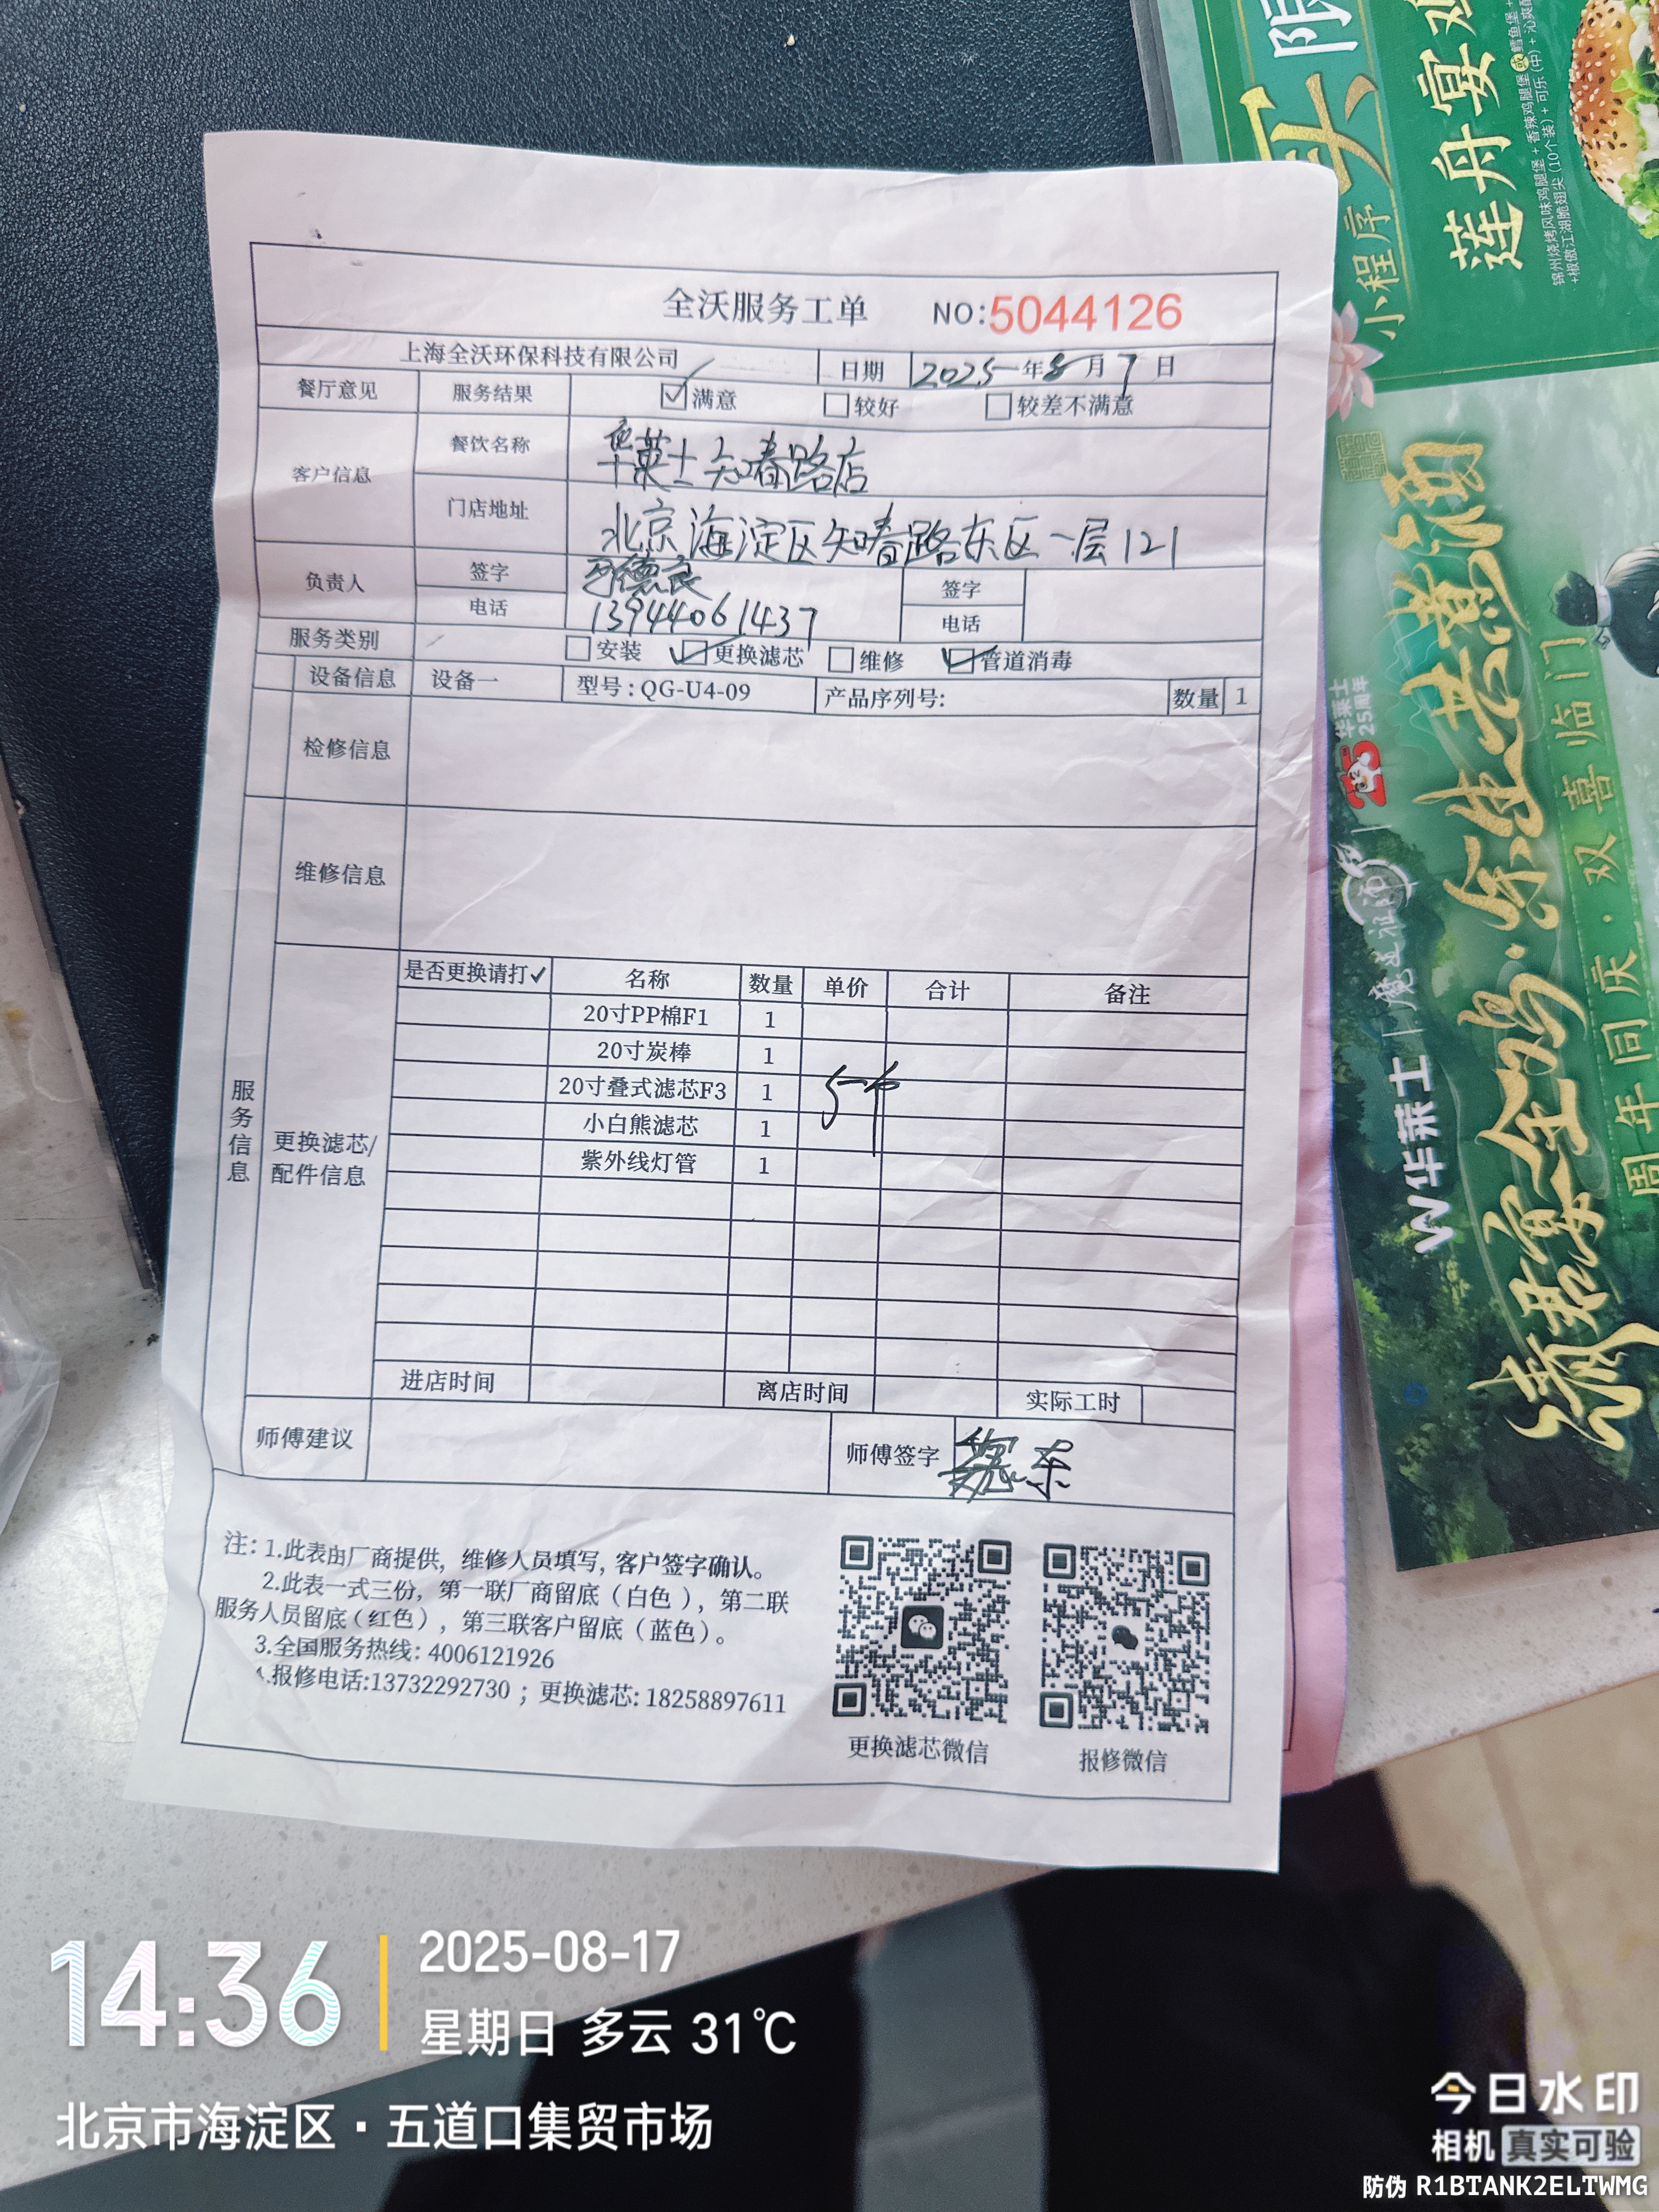 全沃服务工单 NO:5044126
上海全沃环保科技有限公司 日期 2025年8月7日
餐厅意见 服务结果 ☑满意 □较好 □较差不满意
客户信息 餐饮名称 华莱士知春路店
门店地址 北京海淀区知春路东区一层121
负责人 签字 德良 签字
电话 13944061437 电话
服务类别 □安装 ☑更换滤芯 □维修 ☑管道消毒
设备信息 设备一 型号:QG-U4-09 产品序列号: 数量 1
检修信息
维修信息
服务信息
更换滤芯/
配件信息
是否更换请打✓ 名称 数量 单价 合计 备注
20寸PP棉F1 1
20寸炭棒 1
20寸叠式滤芯F3 1
小白熊滤芯 1
紫外线灯管 1
进店时间 离店时间 实际工时
师傅建议 师傅签字 魏东
注: 1.此表由厂商提供, 维修人员填写, 客户签字确认。
2.此表一式三份, 第一联厂商留底（白色）, 第二联
服务人员留底(红色), 第三联客户留底（蓝色)。
3.全国服务热线: 4006121926
4.报修电话:13732292730 ; 更换滤芯: 18258897611
更换滤芯微信 报修微信
限
买
小程序
莲舟宴
锦州烧烤风味鸡腿堡 + 香辣鸡腿堡或鳕鱼堡 +
+椒傲江湖脆翅尖 (10个装) + 可乐(中) +
25 华莱士
25周年
W华莱士
周年同庆·双喜临门
14:36
2025-08-17
星期日 多云 31℃
北京市海淀区·五道口集贸市场
今日水印
相机 真实可验
防伪 R1BTANK2ELTWMG